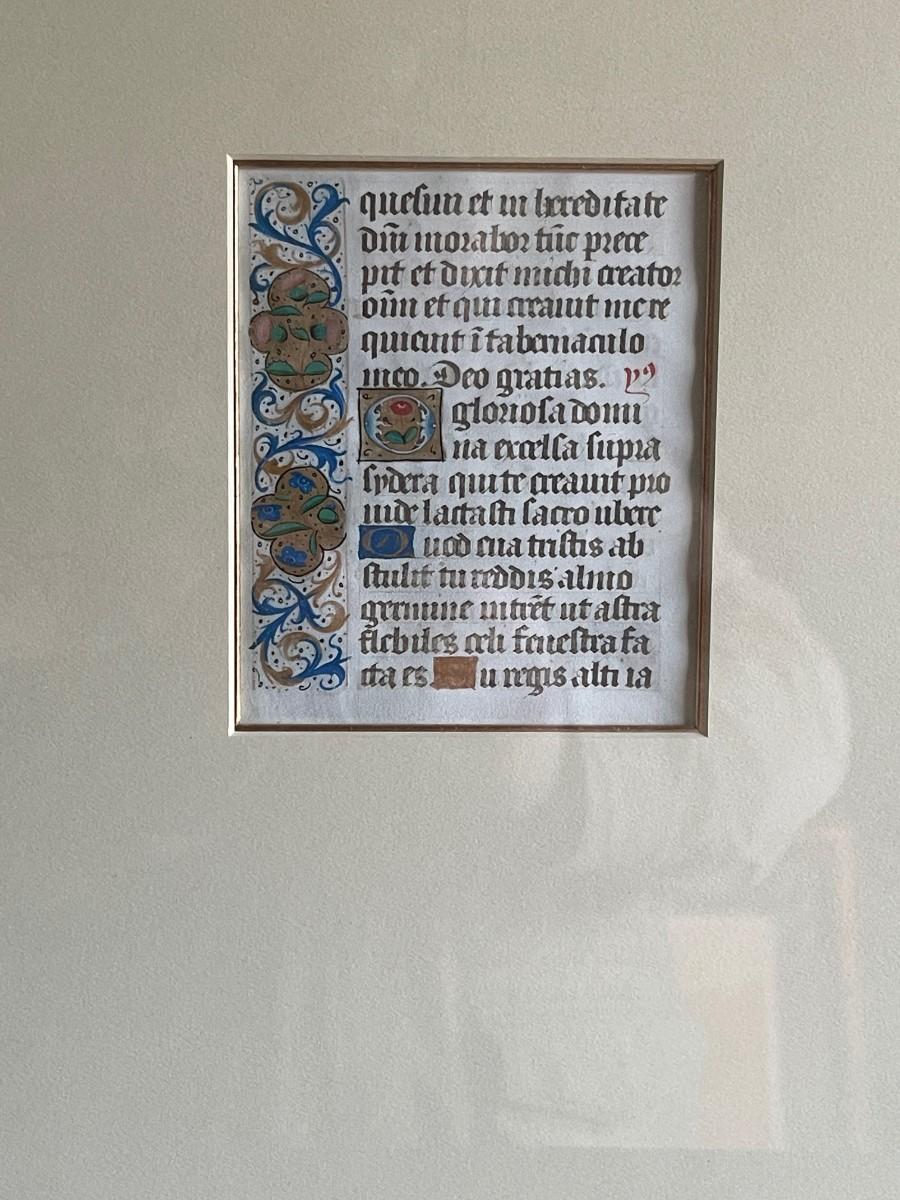 quesiui et in hereditate
dn̄i morabor tūc prece
pit et dixit michi creator
oīm et qui creauit me re
quieuit ī tabernaculo
meo. Deo gratias. yᵒ
O gloriosa domi
na excelsa supra
sydera qui te creauit pro
uide lactasti sacro ubere
Quod eua tristis ab
stulit tu reddis almo
germine intrēt ut astra
flebiles celi fenestra fa
cta es Tu regis alti ia